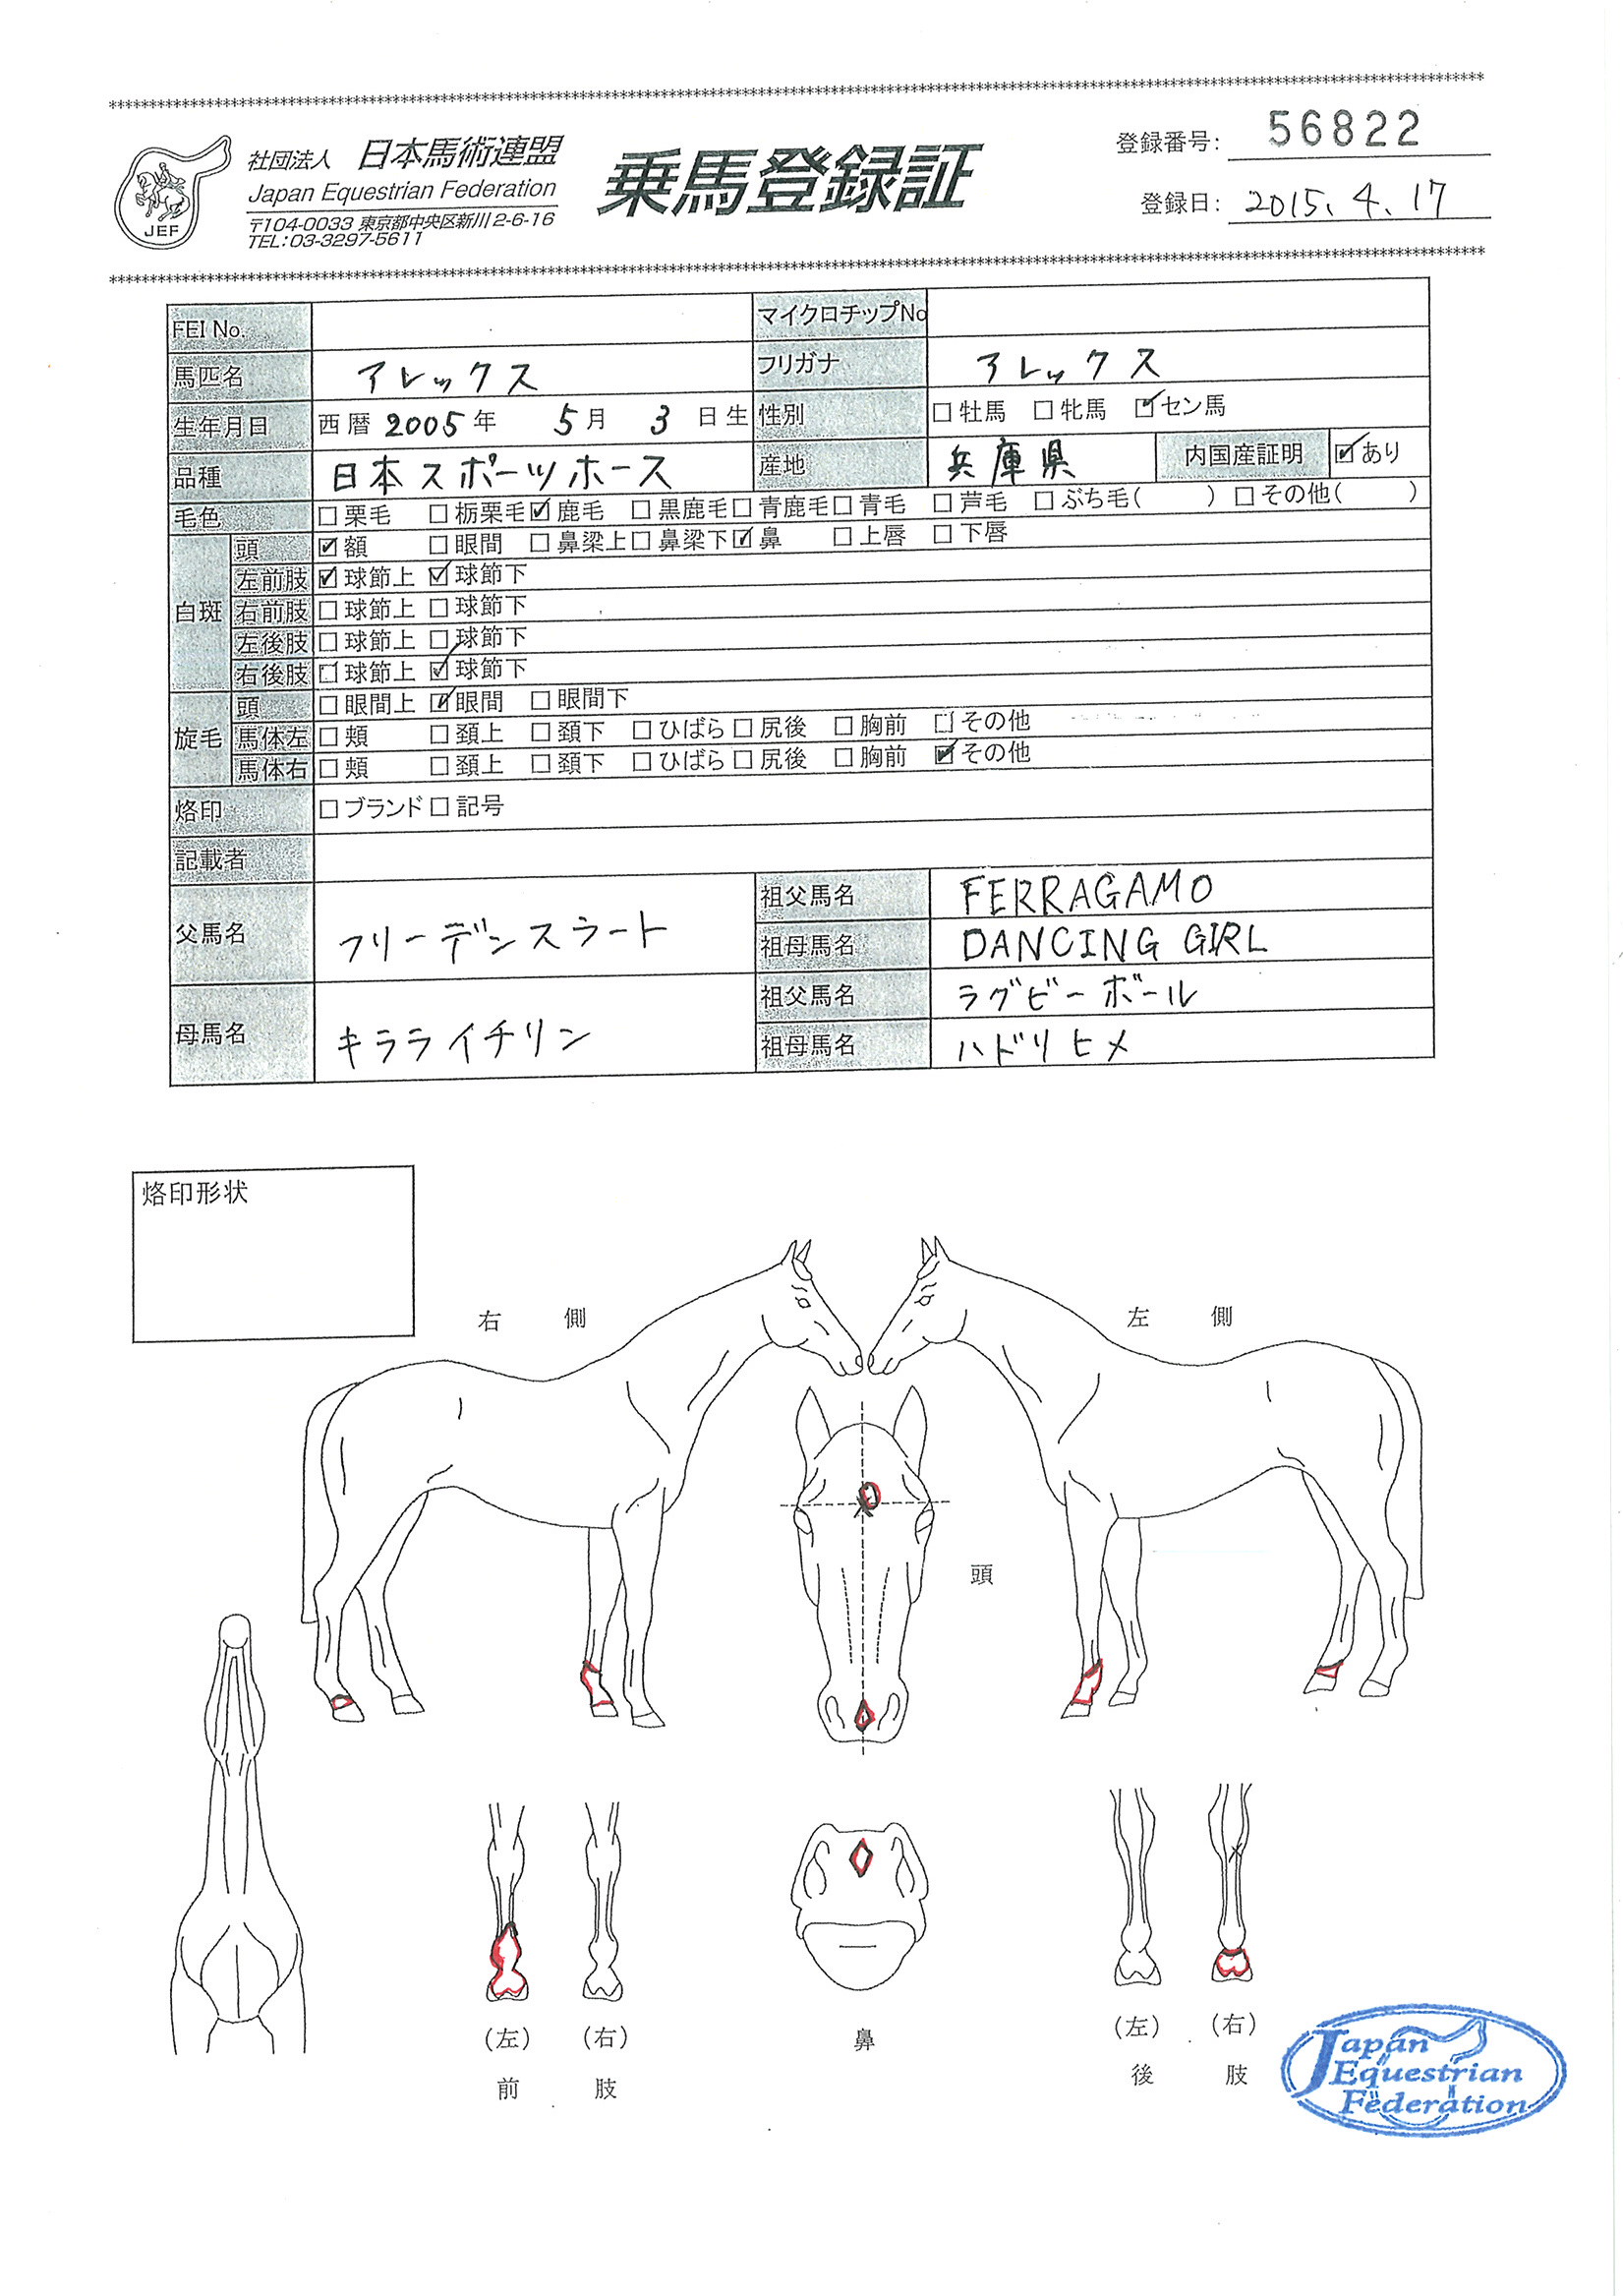 社団法人 日本馬術連盟
Japan Equestrian Federation
〒104-0033 東京都中央区新川2-6-16
TEL:03-3297-5611
JEF
乗馬登録証
登録番号: 56822
登録日: 2015. 4. 17
FEI No. マイクロチップNo
馬匹名 アレックス フリガナ アレックス
生年月日 西暦 2005 年 5 月 3 日生 性別 □牡馬 □牝馬 ☑セン馬
品種 日本スポーツホース 産地 兵庫県 内国産証明 ☑あり
毛色 □栗毛 □栃栗毛 ☑鹿毛 □黒鹿毛 □青鹿毛 □青毛 □芦毛 □ぶち毛( ) □その他( )
白斑 頭 ☑額 □眼間 □鼻梁上 □鼻梁下 ☑鼻 □上唇 □下唇
左前肢 ☑球節上 ☑球節下
右前肢 □球節上 □球節下
左後肢 □球節上 □球節下
右後肢 □球節上 ☑球節下
旋毛 頭 □眼間上 ☑眼間 □眼間下
馬体左 □頬 □頚上 □頚下 □ひばら □尻後 □胸前 □その他
馬体右 □頬 □頚上 □頚下 □ひばら □尻後 □胸前 ☑その他
烙印 □ブランド □記号
記載者
父馬名 フリーデンスラート 祖父馬名 FERRAGAMO
祖母馬名 DANCING GIRL
母馬名 キラライチリン 祖父馬名 ラグビーボール
祖母馬名 ハドリヒメ
烙印形状
右側 左側
頭
(左) (右) 鼻 (左) (右)
前肢 後肢
Japan
Equestrian
Federation